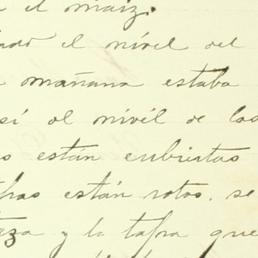 el maiz.
el nivel del
mañana estaba
al nivel de los
estan cubiertas
estan rotas. se
y la tapa que